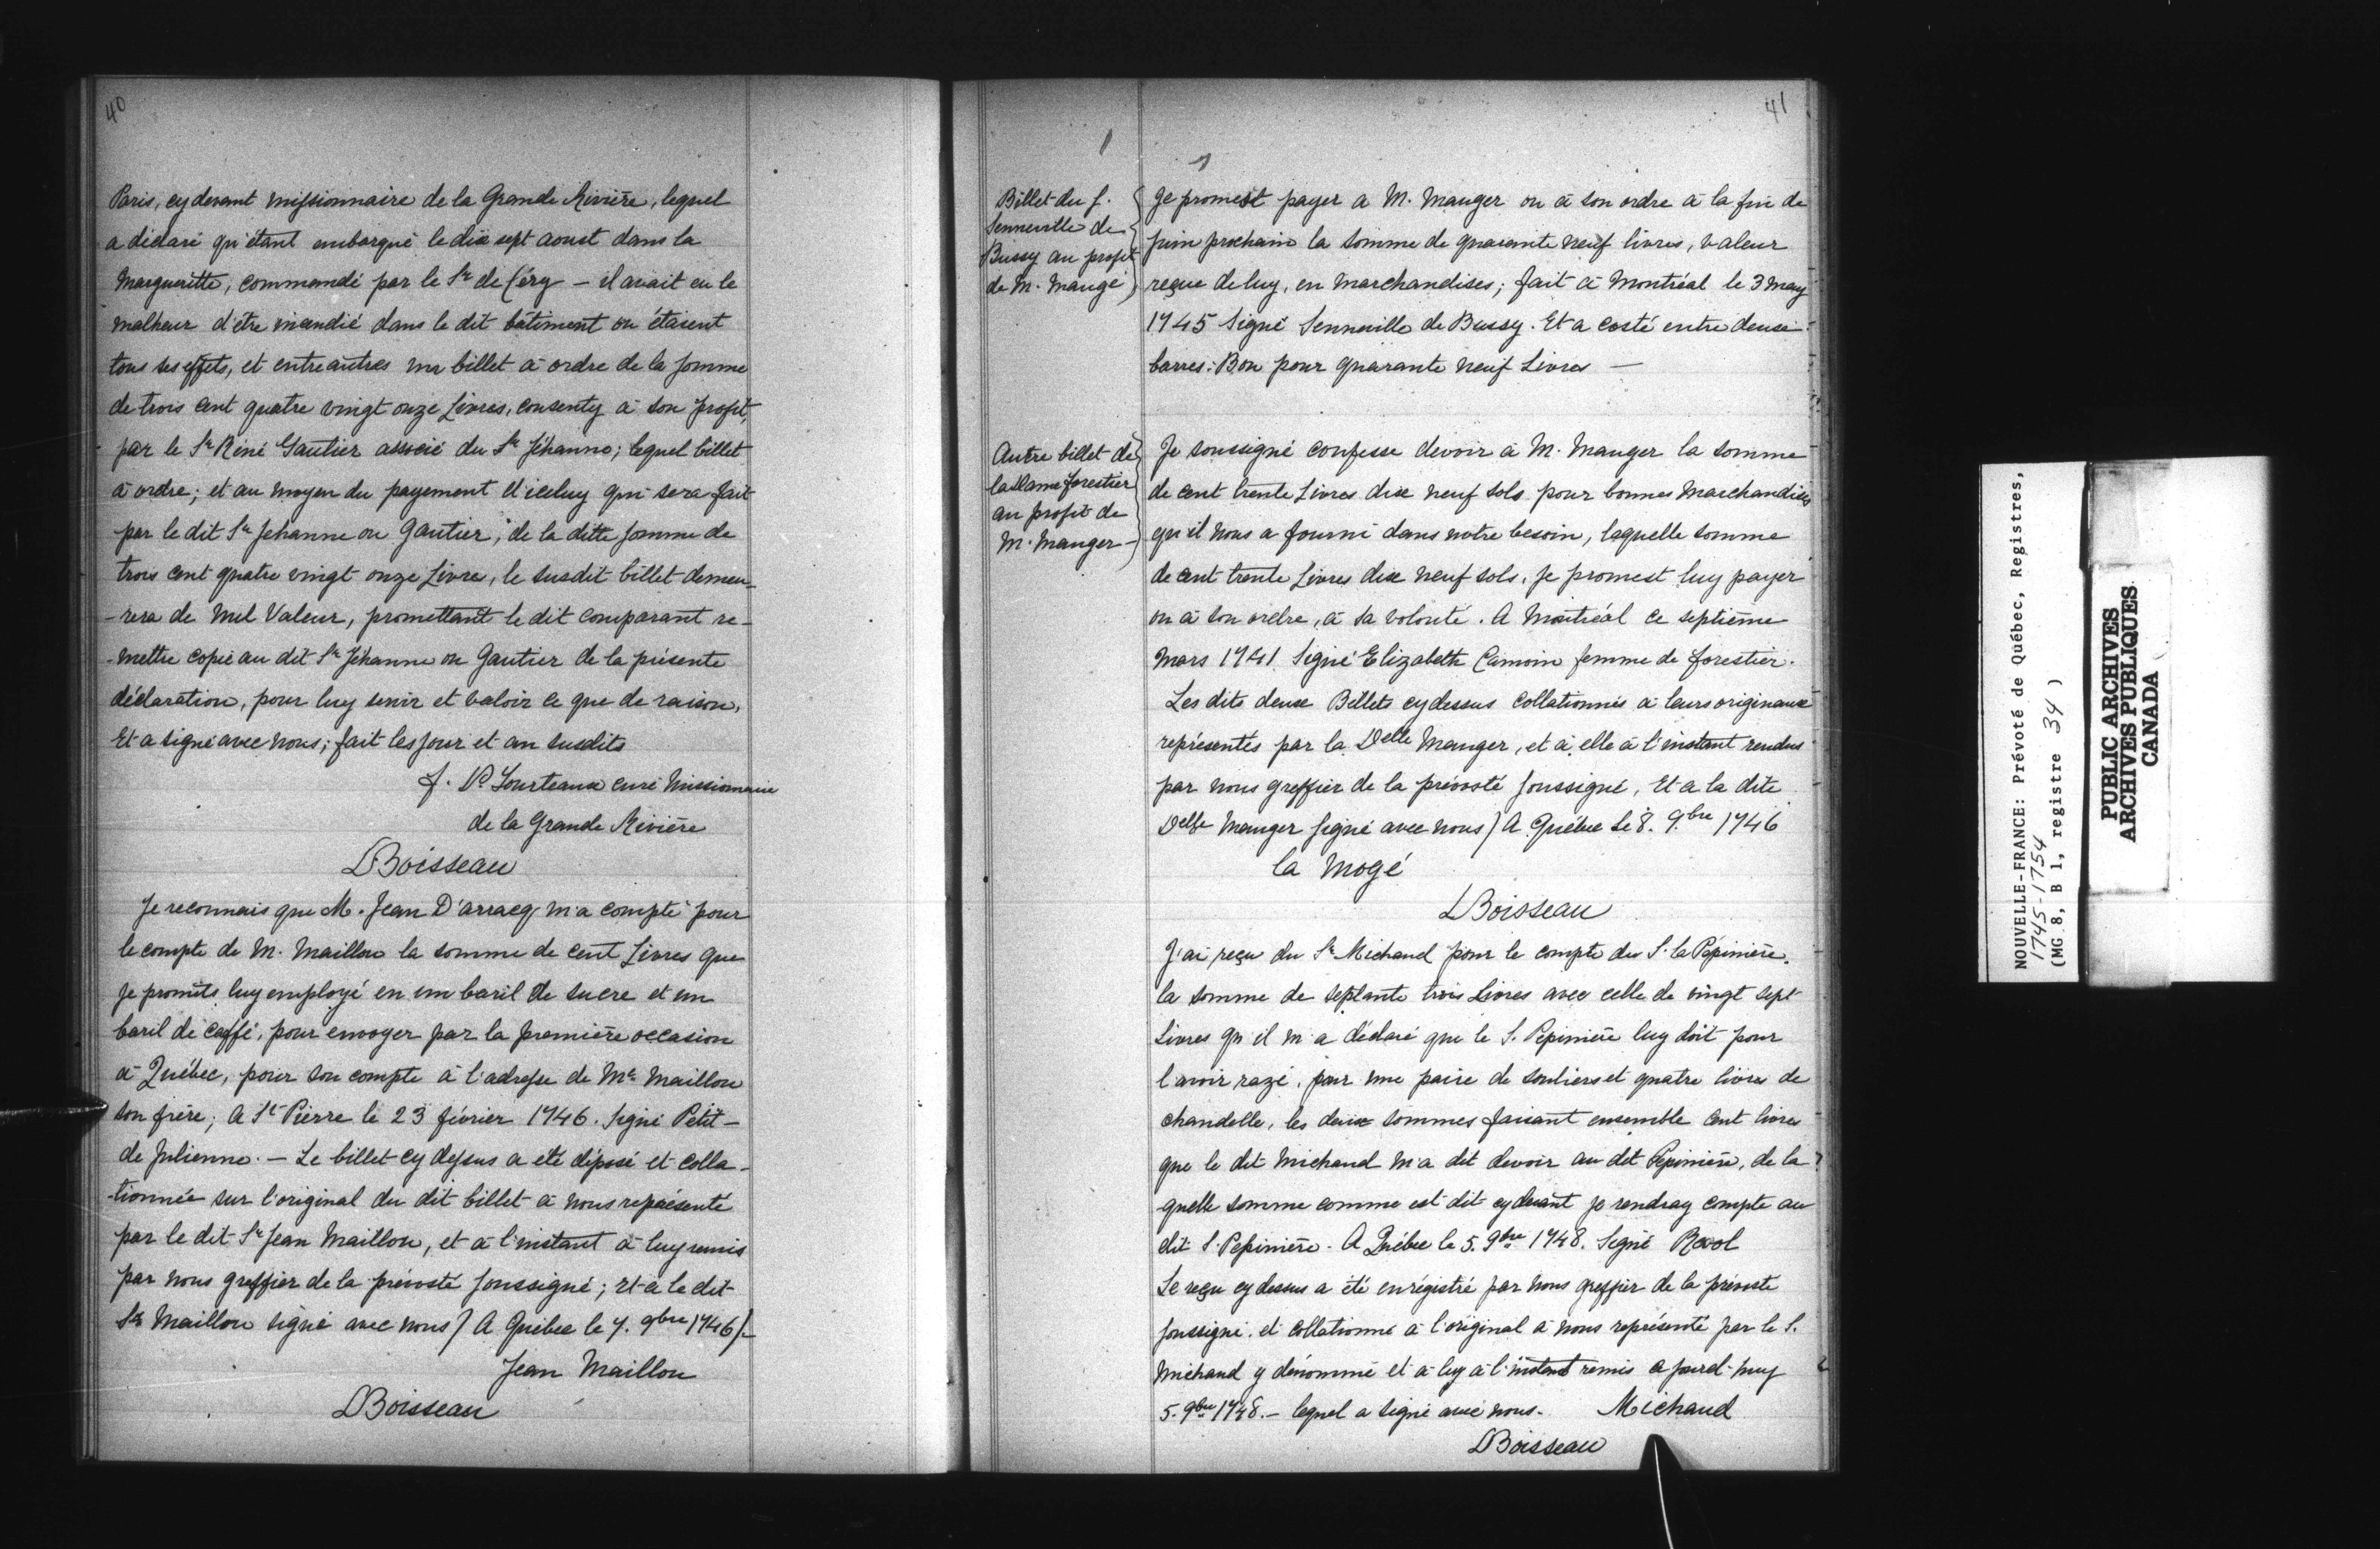 40
Paris, cy devant missionnaire de la Grande Rivière, lequel
a déclaré qu'étant embarqué le dix sept aoust dans la
Margueritte, commandé par le Sr de Céry - il avait eu le
malheur d'être incendié dans le dit bâtiment ou étaient
tous ses effets, et entre autres un billet à ordre de la somme
de trois cent quatre vingt onze Livres, consenty à son profit,
par le Sr Réné Gautier associé du Sr Jéhanno; lequel billet
à ordre; et au moyen du payement d'iceluy qui sera fait
par le dit Sr Jehanne ou Gautier, de la ditte somme de
trois cent quatre vingt onze Livre, le susdit billet demeu-
-rera de nul Valeur, promettant le dit comparant re-
-mettre copie au dit Sr Jéhanne ou Gautier de la présente
déclaration, pour luy servir et valoir ce que de raison,
Et a signé avec nous; fait les jour et an susdits
f. Vt Lourteaux curé Missionnaire
de la Grande Rivière
DBoisseau
Je reconnais que M. Jean D'arracq m'a compté pour
le compte de M. Maillou la somme de cent Livres que
Je promets luy employé en un baril de sucre et un
baril de caffé, pour envoyer par la première occasion
à Québec, pour son compte à l'adresse de Mr Maillou
son frère; a St Pierre le 23 février 1746. Signé Petit-
de Julienne. - Le billet cy dessus a eté déposé et colla-
-tionnée sur l'original du dit billet à nous représenté
par le dit Sr Jean Maillou, et à l'instant à luy remis
par nous greffier de la prévosté soussigné; et a le dit
Sr Maillou signé avec nous) A Québec le 7. 9bre 1746/-
Jean Maillou
DBoisseau
41
Billet du f.
Senneville de
Bussy au profit
de M. Maugé
Je promest payer a M. Mauger ou à son ordre à la fin de
juin prochain la somme de quarante neuf livres, valeur
reçue de luy, en marchandises; fait à Montréal le 3 may
1745 Signé Senneville de Bussy. Et a costé entre deux
barres: Bon pour quarante neuf Livres -
Autre billet de
la Dame forestier
au profit de
M. Mauger -
Je soussigné confesse devoir à M. Mauger la somme
de cent trente Livres dix neuf sols pour bonnes Marchandises
qu'il nous a fourni dans notre besoin, laquelle somme
de cent trente Livres dix neuf sols, Je promest luy payer
ou à son ordre, à sa volonté. A Montréal ce septième
Mars 1741. Signé Elizabeth Camoin femme de forestier.
Les dits deux Billets cy dessus collationnés à leurs originaux
représentés par la Delle Mauger, et à elle à l'instant rendus
par nous greffier de la prévosté soussigné, Et a la dite
Delle Mauger signé avec nous) A Québec Le 8. 9.bre 1746
la Mogé
DBoisseau
J'ai reçu du Sr Michaud pour le compte du S. la Pépinière
la somme de septante trois Livres avec celle de vingt sept
Livres qu'il m'a déclaré que le S. Pepinière luy doit pour
l'avoir razé, pour une paire de souliers et quatre livres de
chandelle, les deux sommes faisant ensemble cent livres
que le dit Michaud m'a dit devoir au dit Pepinière, de la
quelle somme comme est dit cy devant je rendray compte au
dit S. Pepinière. A Québec le 5. 9bre 1748. Signé Revol
Le reçu cy dessus a été enrégistré par nous greffier de la prévosté
soussigné, et collationné à l'original à nous représenté par le S.
Michaud y dénommé et à luy à l'instant remis a jourd'huy
5. 9bre 1748. - lequel a signé avec nous. Michaud
DBoisseau
NOUVELLE-FRANCE: Prévoté de Québec, Registres,
1745-1754
(MG 8, B 1, registre 34 )
PUBLIC ARCHIVES
ARCHIVES PUBLIQUES
CANADA